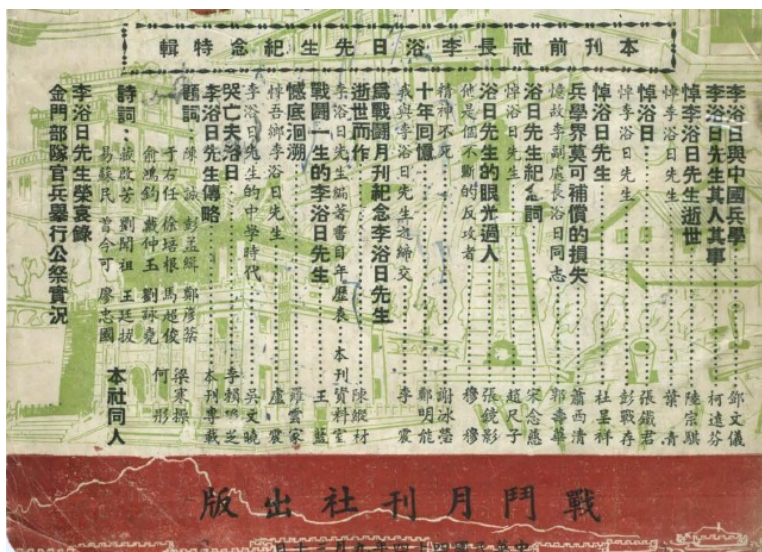 本刊前社長李浴日先生紀念特輯
李浴日與中國兵學………鄧文儀
李浴日先生其人其事………柯遠芬
悼李浴日先生逝世………陸宗騏
悼李浴日先生………葉青
悼浴日………張鐵君
悼李浴日先生………彭戰存
悼浴日先生………杜呈祥
兵學界莫可補償的損失………蕭西清
憶故李副處長浴日同志………郭壽華
浴日先生紀念詞………宋念慈
悼浴日先生………趙尺子
浴日先生的眼光過人………張鏡影
他是個不斷的反攻者………穆穆
精神不死………謝冰瑩
十年回憶………鄭明能
我與李浴日先生之締交………李震
爲戰鬪月刊紀念李浴日先生
逝世而作………陳縱材
李浴日先生編著書目年歷表………本刊資料室
戰鬪一生的李浴日先生………王藍
憾底洄溯………羅雲家
悼吾鄉李浴日先生………盧震
李浴日先生的中學時代………吳文曉
哭亡夫浴日………李賴瑤芝
李浴日先生傳略………本刊專載
題詞：陳誠 彭孟緝 鄭彥棻 梁寒操
于右任 徐培根 馬超俊 何彤
俞鴻鈞 戴仲玉 劉琢堯
詩詞：臧啟芳 劉聞祖 王廷拔
易蘇民 曾今可 廖忠國
李浴日先生榮哀錄………本社同人
金門部隊官兵舉行公祭實況
戰鬥月刊社出版